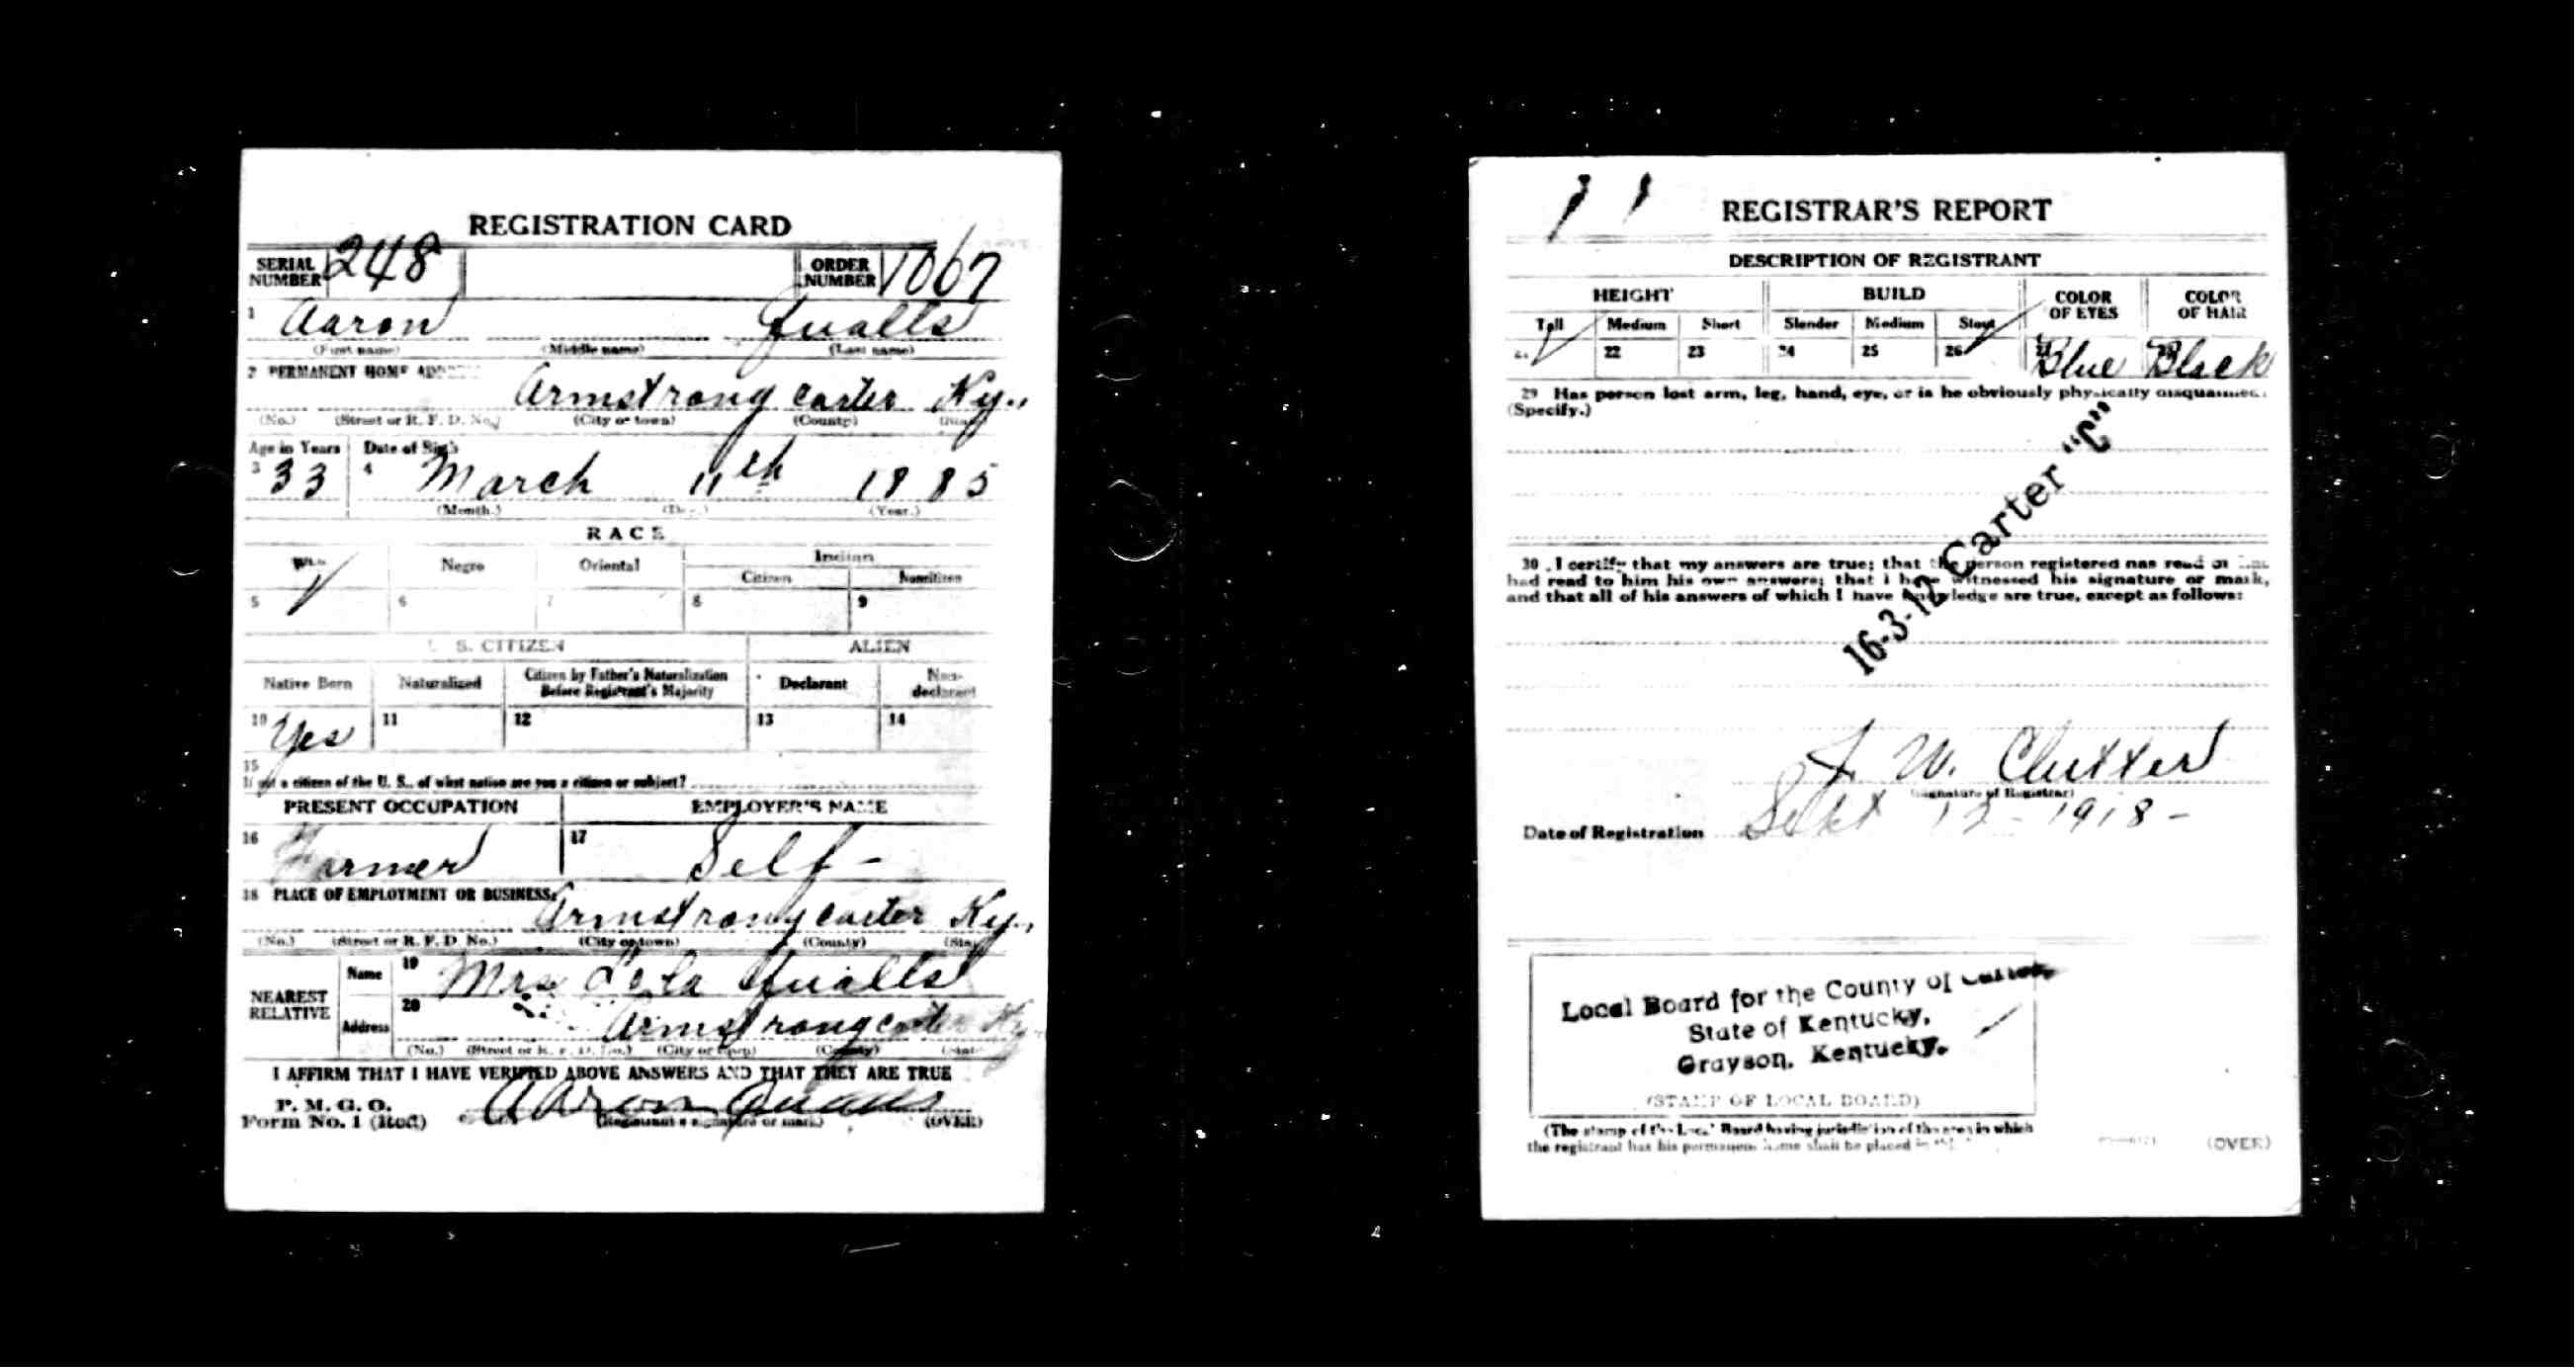 REGISTRATION CARD
SERIAL NUMBER 248 ORDER NUMBER 1067
1 Aaron Qualls
(First name) (Middle name) (Last name)
2 PERMANENT HOME ADDRESS
Armstrong carter Ky.,
(No.) (Street or R. F. D. No.) (City or town) (County) (State)
Age in Years Date of Birth
3 33 4 March 11th 1885
(Month.) (Day.) (Year.)
RACE
White Negro Oriental Indian
Citizen Noncitizen
5 6 7 8 9
U. S. CITIZEN ALIEN
Native Born Naturalized Citizen by Father's Naturalization Before Registrant's Majority Declarant Non-declarant
10 Yes 11 12 13 14
15
If not a citizen of the U. S., of what nation are you a citizen or subject?
PRESENT OCCUPATION EMPLOYER'S NAME
16 Farmer 17 Self -
18 PLACE OF EMPLOYMENT OR BUSINESS:
Armstrong carter Ky.,
(No.) (Street or R. F. D. No.) (City or town) (County) (State)
NEAREST RELATIVE Name 19 Mrs Lela Qualls
Address 20 Armstrong carter Ky
(No.) (Street or R. F. D. No.) (City or town) (County) (State)
I AFFIRM THAT I HAVE VERIFIED ABOVE ANSWERS AND THAT THEY ARE TRUE
P. M. G. O.
Form No. 1 (Red) Aaron Qualls
(Registrant's signature or mark) (OVER)
REGISTRAR'S REPORT
DESCRIPTION OF REGISTRANT
HEIGHT BUILD COLOR OF EYES COLOR OF HAIR
Tall Medium Short Slender Medium Stout
21 22 23 24 25 26 27 Blue 28 Black
29 Has person lost arm, leg, hand, eye, or is he obviously physically disqualified?
(Specify.)
16-3-12 Carter "C"
30 I certify that my answers are true; that the person registered has read or has
had read to him his own answers; that I have witnessed his signature or mark,
and that all of his answers of which I have knowledge are true, except as follows:
W. Clutter
(Signature of Registrar)
Date of Registration Sept 12 - 1918 -
Local Board for the County of Carter,
State of Kentucky,
Grayson, Kentucky.
(STAMP OF LOCAL BOARD)
(The stamp of the Local Board having jurisdiction of the area in which
the registrant has his permanent home shall be placed in this
(OVER)